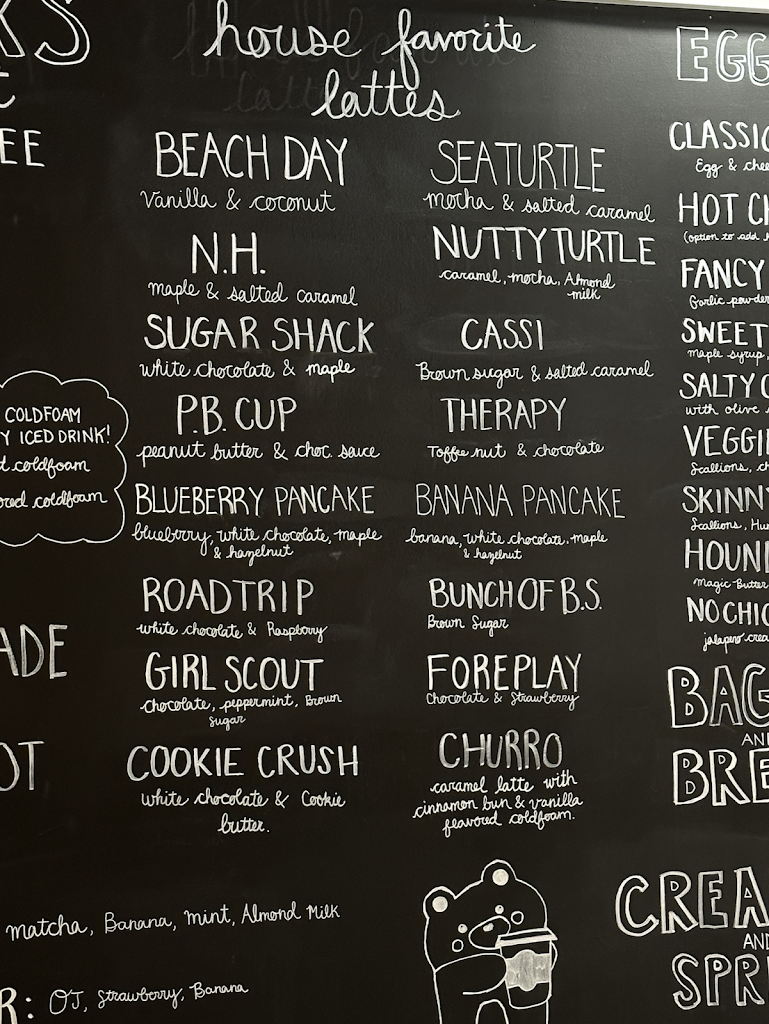 house favorite
lattes
BEACH DAY
Vanilla & coconut
N.H.
maple & salted caramel
SUGAR SHACK
white chocolate & maple
P.B. CUP
peanut butter & choc. sauce
BLUEBERRY PANCAKE
blueberry, white chocolate, maple
& hazelnut
ROADTRIP
white chocolate & Raspberry
GIRL SCOUT
chocolate, peppermint, Brown
sugar
COOKIE CRUSH
white chocolate & Cookie
butter.
SEATURTLE
mocha & salted caramel
NUTTY TURTLE
caramel, mocha, Almond
milk
CASSI
Brown sugar & salted caramel
THERAPY
Toffee nut & chocolate
BANANA PANCAKE
banana, white chocolate, maple
& hazelnut
BUNCH OF B.S.
Brown Sugar
FOREPLAY
Chocolate & Strawberry
CHURRO
caramel latte with
cinnamon bun & vanilla
flavored coldfoam.
COLDFOAM
ICED DRINK!
coldfoam
coldfoam
matcha, Banana, mint, Almond Milk
OJ, Strawberry, Banana
EGG
CLASSIC
Egg &
HOT
(option to add
FANCY
Garlic powder
SWEET
maple syrup,
SALTY
with olive
VEGGIE
Scallions,
SKINNY
Scallions,
HOUN
Magic Butter
NO
jalapeno
BAG
AND
BRE
CREA
AND
SPR